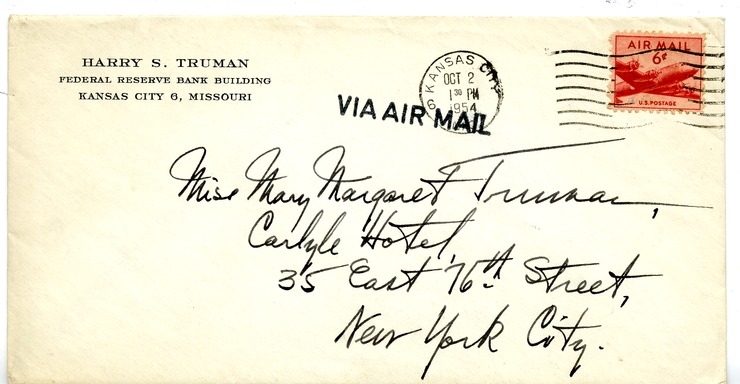 HARRY S. TRUMAN
FEDERAL RESERVE BANK BUILDING
KANSAS CITY 6, MISSOURI
KANSAS CITY
OCT 2
1 30 PM
1954
6
VIA AIR MAIL
AIR MAIL
6¢
U.S. POSTAGE
Miss Mary Margaret Truman,
Carlyle Hotel,
35 East 76th Street,
New York City.